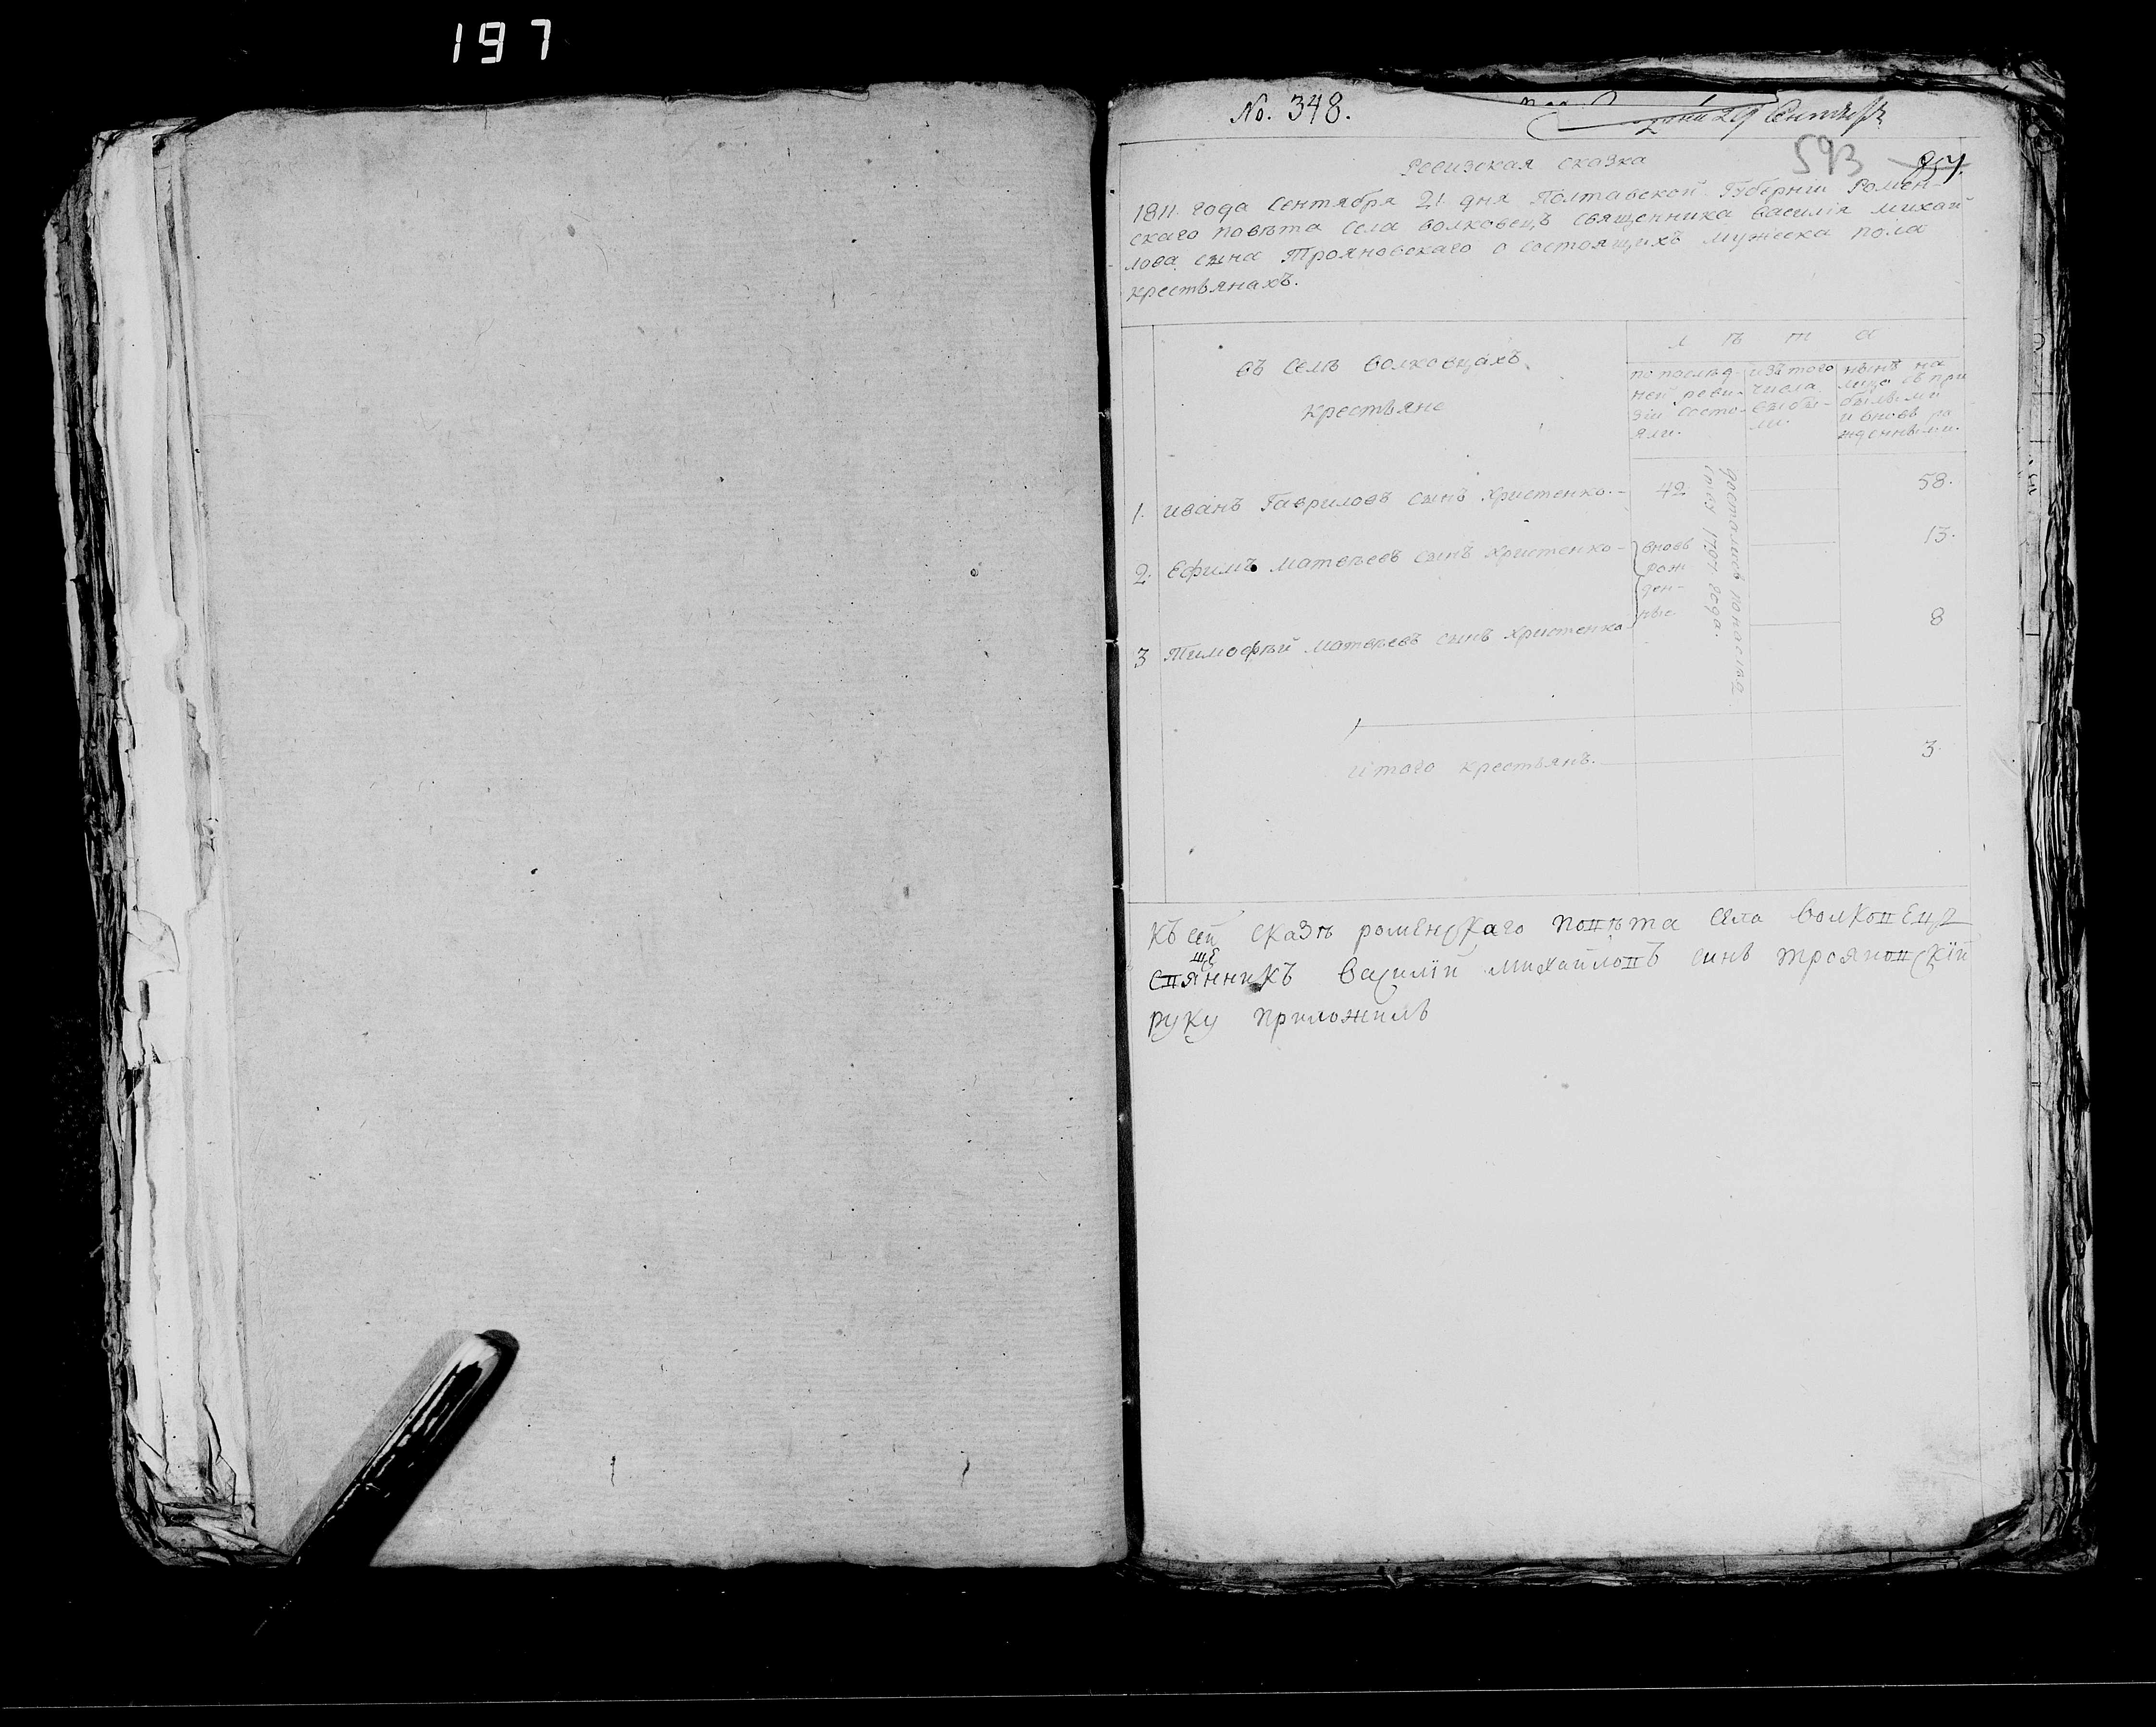 197
No. 348.
29 Сентября
593
Ревизская сказка
1811. года Сентября 21 дня Полтавской Губернiи Ромен-
скаго повѣта Села Волковецъ Священника Василiя Михай
лова сына Трояновскаго о состоящихъ мужеска пола
крестьянахъ.
въ Селѣ Волковцахъ
Крестьяне
лѣта
по послѣд-
ней реви-
зiи состо-
яли.
изъ того
числа
выбы-
ли.
нынѣ на
лицо съ при
былыми
и вновь ро
жденными.
1. Иванъ Гавриловъ сынъ Христенко. 42 58.
2. Ефимъ Матвѣевъ сынъ Христенко 13.
3 Тимофѣй Матвѣевъ сынъ Христенко 8
вновь
рож
ден-
ные
достались по наслѣд
ству 1797 года.
Итого крестьянъ. 3.
Къ сей сказѣ роменскаго повѣта села Волковецъ
священникъ Василiй Михайловъ синъ Трояновскiй
руку приложилъ